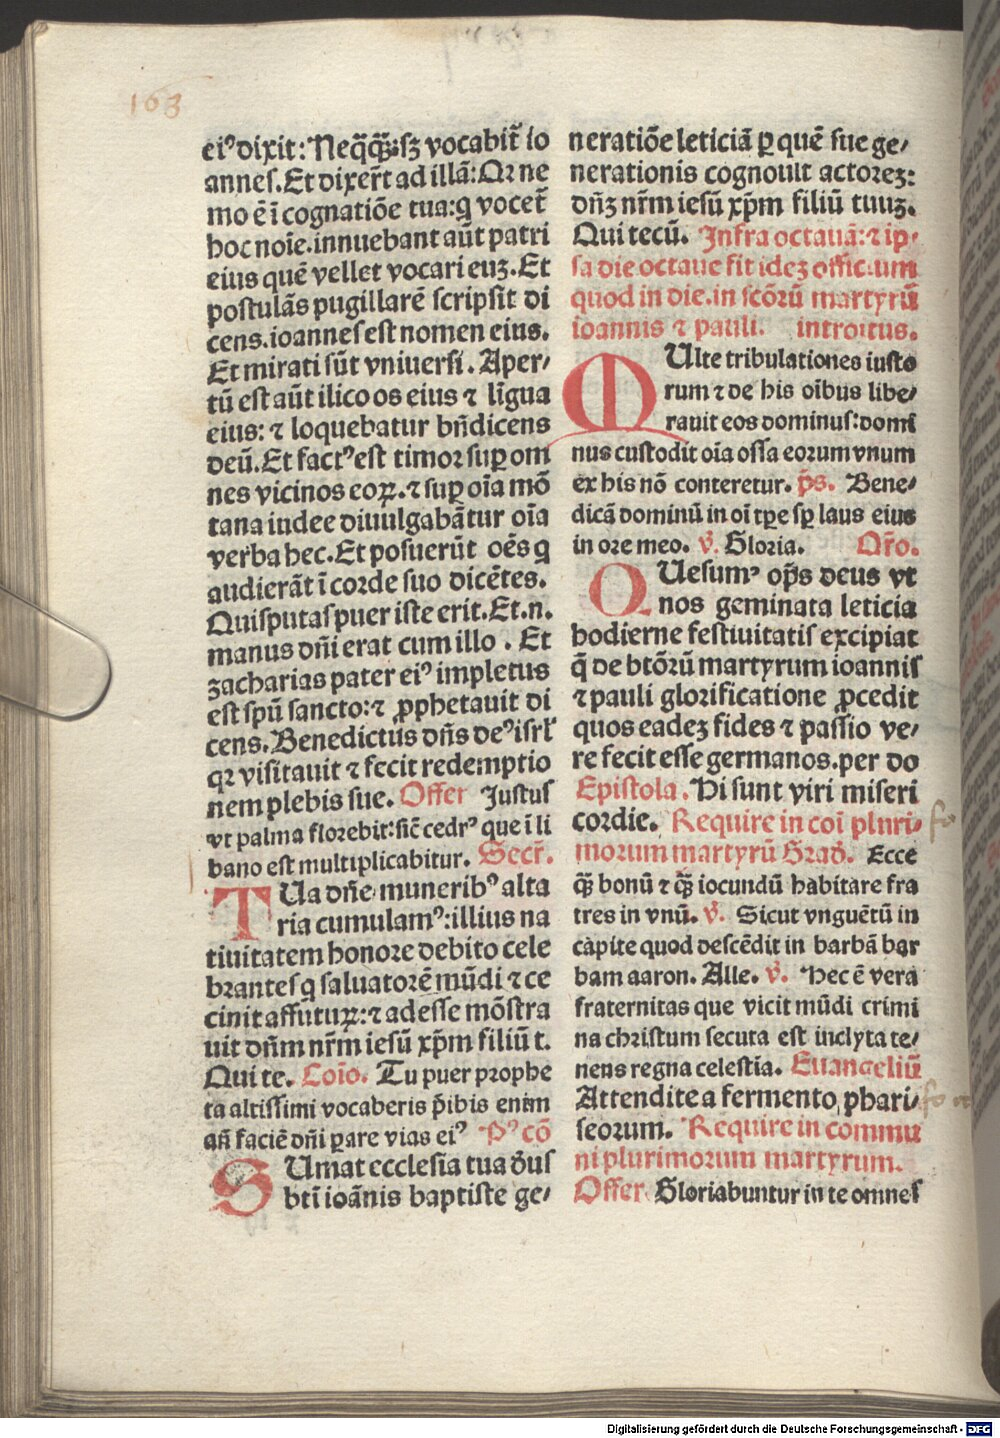 163
eiꝰ dixit: Neq̄q̄ꝫ sꝫ vocabit̄ io
annes. Et dixer̄t ad illā: Qꝛ ne
mo ē ī cognatiōe tua: q vocet̄
hoc noīe. innuebant aūt patri
eius quē vellet vocari euꝫ. Et
postulās pugillarē scripsit di
cens. ioannes est nomen eius.
Et mirati sūt vniuersi. Aper⸗
tū est aūt ilico os eius ⁊ līgua
eius: ⁊ loquebatur bn̄dicens
deū. Et factꝰ est timor suꝑ om
nes vicinos eoꝝ. ⁊ suꝑ oīa mō
tana iudee diuulgabātur oīa
verba hec. Et posuerūt oēs q
audierāt ī corde suo dicētes.
Quis putas puer iste erit. Et. n.
manus dn̄i erat cum illo. Et
zacharias pater eiꝰ impletus
est spū sancto: ⁊ ꝓphetauit di
cens. Benedictus dn̄s deꝰ isrl̄
qꝛ visitauit ⁊ fecit redemptio
nem plebis sue. Offer Justus
vt palma florebit: sic̄ cedrꝰ que ī li
bano est multiplicabitur. Secr̄.
TUa dn̄e muneribꝰ alta
ria cumulamꝰ: illius na
tiuitatem honore debito cele
brantes q saluatorē mūdi ⁊ ce
cinit affuturꝝ: ⁊ adesse mōstra
uit dn̄m nr̄m iesū xp̄m filiū t.
Qui te. Coīo. Tu puer prophe
ta altissimi vocaberis p̄ibis enim
an̄ faciē dn̄i ꝑare vias eiꝰ Pꝰ cō
SUmat ecclesia tua d̄us
bti̅ ioānis baptiste ge⸗
neratiōe leticiā ꝑ quē sue ge⸗
nerationis cognouit actoreꝫ:
dn̄ꝫ nr̄m iesū xp̄m filiū tuuꝫ.
Qui tecū. Infra octauā: ⁊ ip⸗
sa die octaue fit ideꝫ officium
quod in die. in scōrū martyrū
ioannis ⁊ pauli. introitus.
MUlte tribulationes iusto
rum ⁊ de his oībus libe⸗
rauit eos dominus: domi
nus custodit oīa ossa eorum vnum
ex his nō conteretur. p̄s. Bene⸗
dicā dominū in oī tꝑe sꝑ laus eius
in ore meo. v̄. Gloria. Or̄o.
QUesumꝰ op̄s deus vt
nos geminata leticia
hodierne festiuitatis excipiat
q̄ de btōrū martyrum ioannis
⁊ pauli glorificatione ꝓcedit
quos eadeꝫ fides ⁊ passio ve⸗
re fecit esse germanos. per do
Epistola. Hi sunt viri miseri
cordie. Require in coī pluri⸗ fo
morum martyrū Grad̄. Ecce
q̄ꝫ bonū ⁊ q̄ꝫ iocundū habitare fra
tres in vnū. v̄. Sicut vnguētū in
capite quod descēdit in barbā bar
bam aaron. Alle. v̄. Hec ē vera
fraternitas que vicit mūdi crimi
na christum secuta est inclyta te⸗
nens regna celestia. Euangeliū
Attendite a fermento phari⸗ fo
seorum. Require in commu
ni plurimorum martyrum.
Offer Gloriabuntur in te omnes
Digitalisierung gefördert durch die Deutsche Forschungsgemeinschaft - DFG